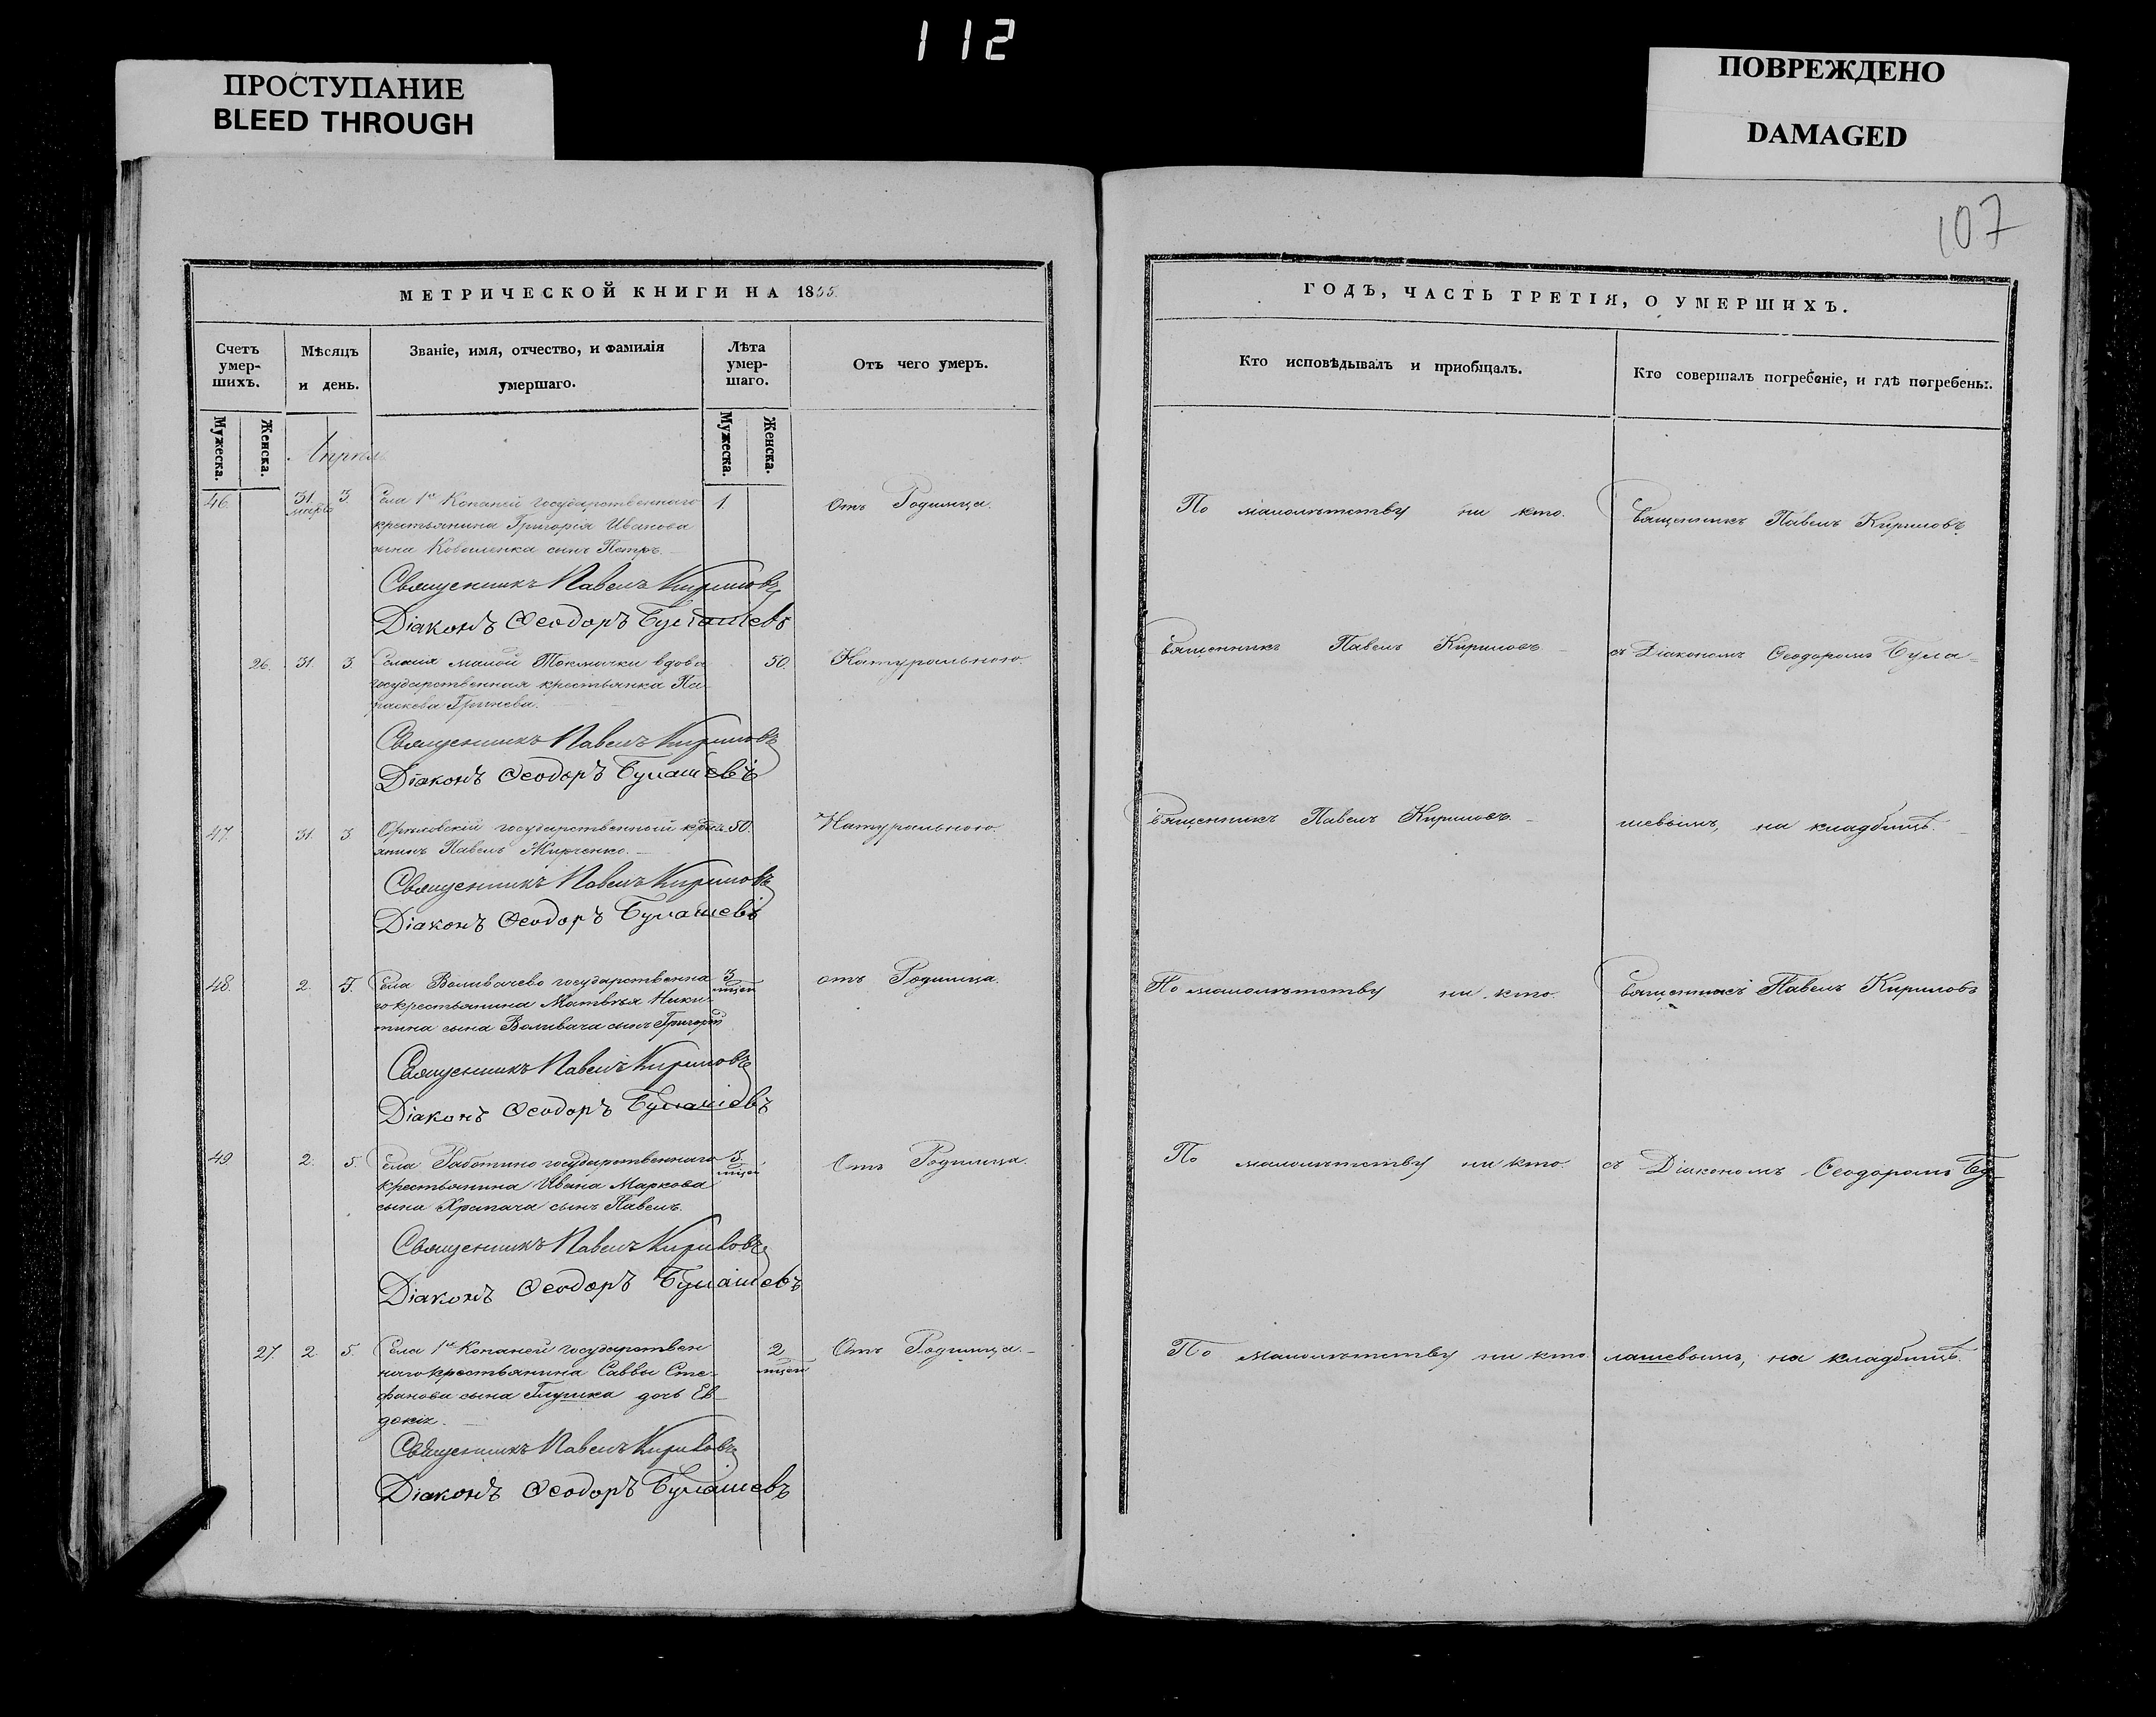 112
ПРОСТУПАНИЕ
BLEED THROUGH
ПОВРЕЖДЕНО
DAMAGED
107
МЕТРИЧЕСКОЙ КНИГИ НА 1855.
Счетъ умер-шихъ.
Мѣсяцъ и день.
Званіе, имя, отчество, и фамилія умершаго.
Лѣта умер-шаго.
Отъ чего умеръ.
Мужеска.
Женска.
Мужеска.
Женска.
Апрѣль
46. 31. марта 3. Села 1х Копаней государственнаго 1. Отъ Родимца.
крестьянина Григорія Иванова
сына сынъ Петръ.
Священникъ Павелъ Кириловъ
Діаконъ Ѳеодоръ Булашевъ
26. 31. 3. Селенія малой Токмачки вдова 50. Натуральною.
государственная крестьянка Па-
раскева Гринева.
Священникъ Павелъ Кириловъ
Діаконъ Ѳеодоръ Булашевъ
47. 31. 3 Орѣховскій государственный крест- 50. Натуральною.
янинъ Павелъ
Священникъ Павелъ Кириловъ
Діаконъ Ѳеодоръ Булашевъ
48. 2. 5. Села государственна 3 отъ Родимца.
го крестьянина Матвѣя Ники-
тина сына сынъ Григорій
Священникъ Павелъ Кириловъ
Діаконъ Ѳеодоръ Булашевъ
49. 2. 5. Села Работино государственнаго 3 Отъ Родимца.
крестьянина Ивана Маркова
сына Храпача сынъ Павелъ.
Священникъ Павелъ Кириловъ
Діаконъ Ѳеодоръ Булашевъ
27. 2. 5. Села 1х Копаней государствен 2 Отъ Родимца.
наго крестьянина Саввы Сте-
фанова сына Глушка дочь Ев-
докія.
Священникъ Павелъ Кириловъ
Діаконъ Ѳеодоръ Булашевъ
ГОДЪ, ЧАСТЬ ТРЕТІЯ, О УМЕРШИХЪ.
Кто исповѣдывалъ и пріобщалъ.
Кто совершалъ погребеніе, и гдѣ погребены.
По малолѣтству ни кто. Священникъ Павелъ Кириловъ
Священникъ Павелъ Кириловъ съ Діакономъ Ѳеодоромъ Була-
Священникъ Павелъ Кириловъ. шевымъ, на кладбищѣ.
По малолѣтству ни кто. Священникъ Павелъ Кириловъ
По малолѣтству ни кто. съ Діакономъ Ѳеодоромъ Бу-
По малолѣтству ни кто лашевымъ, на кладбищѣ.